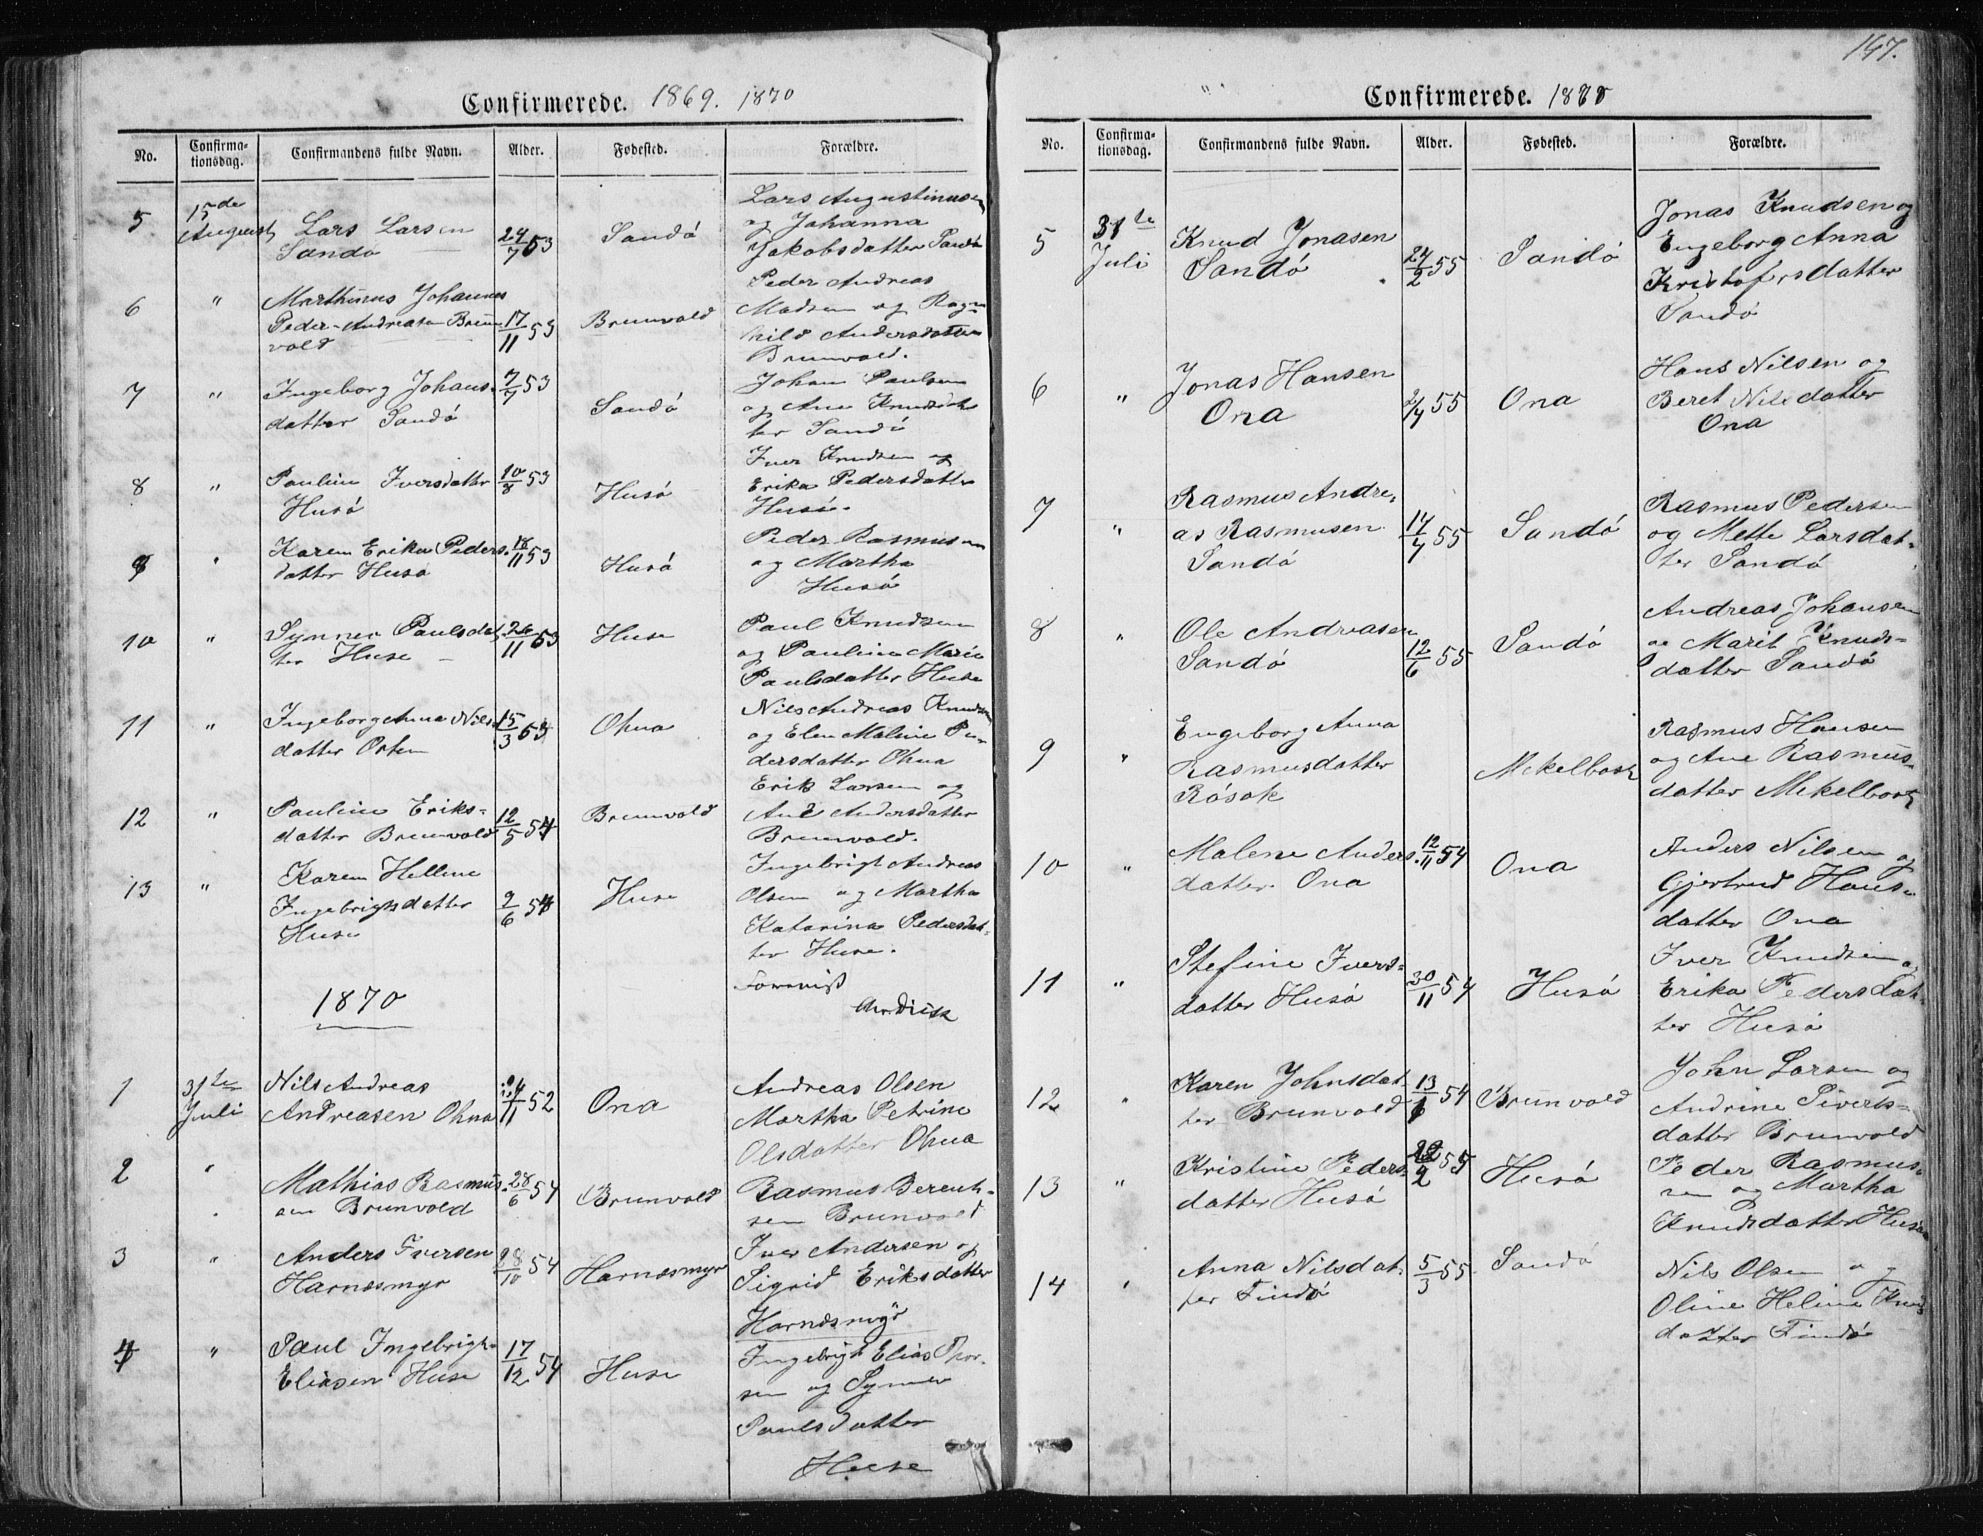 Confirmerede. 1869. 1870
No. Confirma-tionsdag. Confirmandens fulde Navn. Alder. Fødested. Forældre.
5 15de August Lars Larsen Sandø 24/7 53 Sandø Lars Augustinusen og Johanna Jakobsdatter Sandø
6 " Marthinus Johannes Peder-Andreasen Brunvold 17/11 53 Brunvold Peder Andreas Madsen og Ragnhild Andersdatter Brunvold.
7 " Ingeborg Johansdatter Sandø 7/7 53 Sandø Johan Paulsen og Ane Knudsdatter Sandø
8 " Pauline Iversdatter Husø 10/8 53 Husø Iver Knudsen og Erika Pedersdatter Husø.
9 " Karen Erika Pedersdatter Husø 18/11 53 Husø Peder Rasmusen og Martha Husø
10 " Synnev Paulsdatter Huse 26/11 53 Huse Paul Knudsen og Pauline Marie Paulsdatter Huse
11 " Ingeborg Anna Nilsdatter Orten 15/3 53 Ohna Nils Andreas Knudsen og Elen Maline Pedersdatter Ohna
12 " Pauline Eriksdatter Brunvold 12/5 54 Brunvold Erik Larsen og Ane Andersdatter Brunvold.
13 " Karen Helline Ingebrigtsdatter Huse 2/6 54 Huse Ingebrigt Andreas Olsen og Martha Katarina Pedersdatter Huse.
1870
1 31te Juli Nils Andreas Andreasen Ohna 52 Ona Andreas Olsen Martha Petrine Olsdatter Ohna
2 " Mathias Rasmusen Brunvold 28/6 54 Brunvold Rasmus Berentsen Brunvold
3 " Anders Iversen Harnæsmyr 28/10 54 Harnæsmyr Iver Andersen og Sigrid Eriksdatter Harnæsmyr
4 " Paul Ingebrigt Eliasen Huse 17/12 54 Huse Ingebrigt Elias Thorsen og Synnev Paulsdatter Huse
147.
Confirmerede. 1870
No. Confirma-tionsdag. Confirmandens fulde Navn. Alder. Fødested. Forældre.
5 31te Juli Knud Jonasen Sandø 24/2 55 Sandø Jonas Knudsen og Engeborg Anna Kristofersdatter Sandø
6 " Jonas Hansen Ona 2/7 55 Ona Hans Nilsen og Beret Nilsdatter Ona
7 " Rasmus Andreas Rasmusen Sandø 14/7 55 Sandø Rasmus Pedersen og Mette Larsdatter Sandø
8 " Ole Andreasen Sandø 12/6 55 Sandø Andreas Johansen og Marit Knudsdatter Sandø
9 " Engeborg Anna Rasmusdatter Røsok Mekelbost Rasmus Hansen og Ane Rasmusdatter Mekelbost
10 " Malene Andersdatter Ona 12/11 54 Ona Anders Nilsen og Gjertrud Hansdatter Ona
11 " Stefine Iversdatter Husø 30/11 54 Husø Iver Knudsen og Erika Pedersdatter Husø
12 " Karen Johnsdatter Brunvold 13/6 54 Brunvold John Larsen og Andrine Sivertsdatter Brunvold
13 " Kristine Pedersdatter Husø 22/2 55 Husø Peder Rasmussen og Martha Knudsdatter Husø
14 " Anna Nilsdatter Findø 5/3 55 Sandø Nils Olsen og Oline Heline Knudsdatter Findø